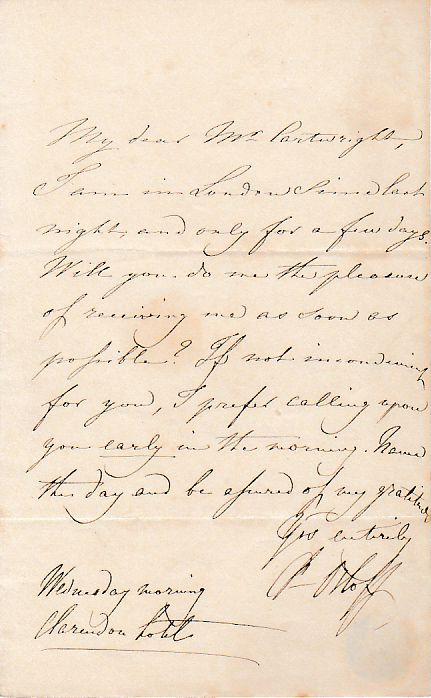 My dear Mr Cartwright,
I am in London since last
night, and only for a few days.
Will you do me the pleasure
of receiving me as soon as
possible? If not inconvening
for you, I prefer calling upon
you early in the morning. Name
the day and be assured of my gratitude
Yrs entirely
Orloff
Wednesday morning
Clarendon Hotel